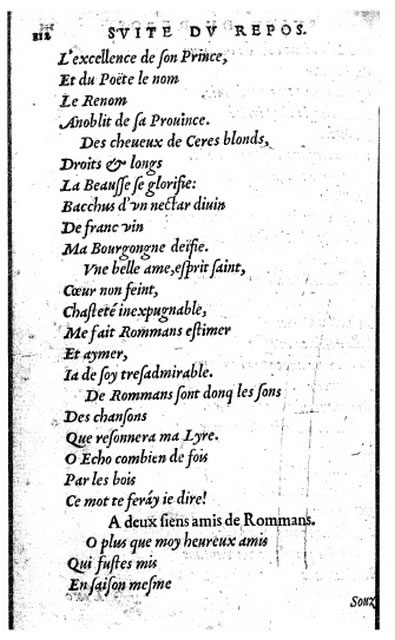 212
SVITE DV REPOS.
L'excellence de ſon Prince,
Et du Poëte le nom
Le Renom
Anoblit de ſa Prouince.
Des cheueux de Ceres blonds,
Droits & longs
La Beauſſe ſe glorifie:
Bacchus d'vn nectar diuin
De franc vin
Ma Bourgongne deïfie.
Vne belle ame, eſprit ſaint,
Cœur non feint,
Chaſteté inexpugnable,
Me fait Rommans eſtimer
Et aymer,
Ia de ſoy treſadmirable.
De Rommans ſont donq les ſons
Des chanſons
Que reſonnera ma Lyre.
O Echo combien de fois
Par les bois
Ce mot te feráy ie dire!
A deux ſiens amis de Rommans.
O plus que moy heureux amis
Qui fuſtes mis
En ſaiſon meſme
Souz